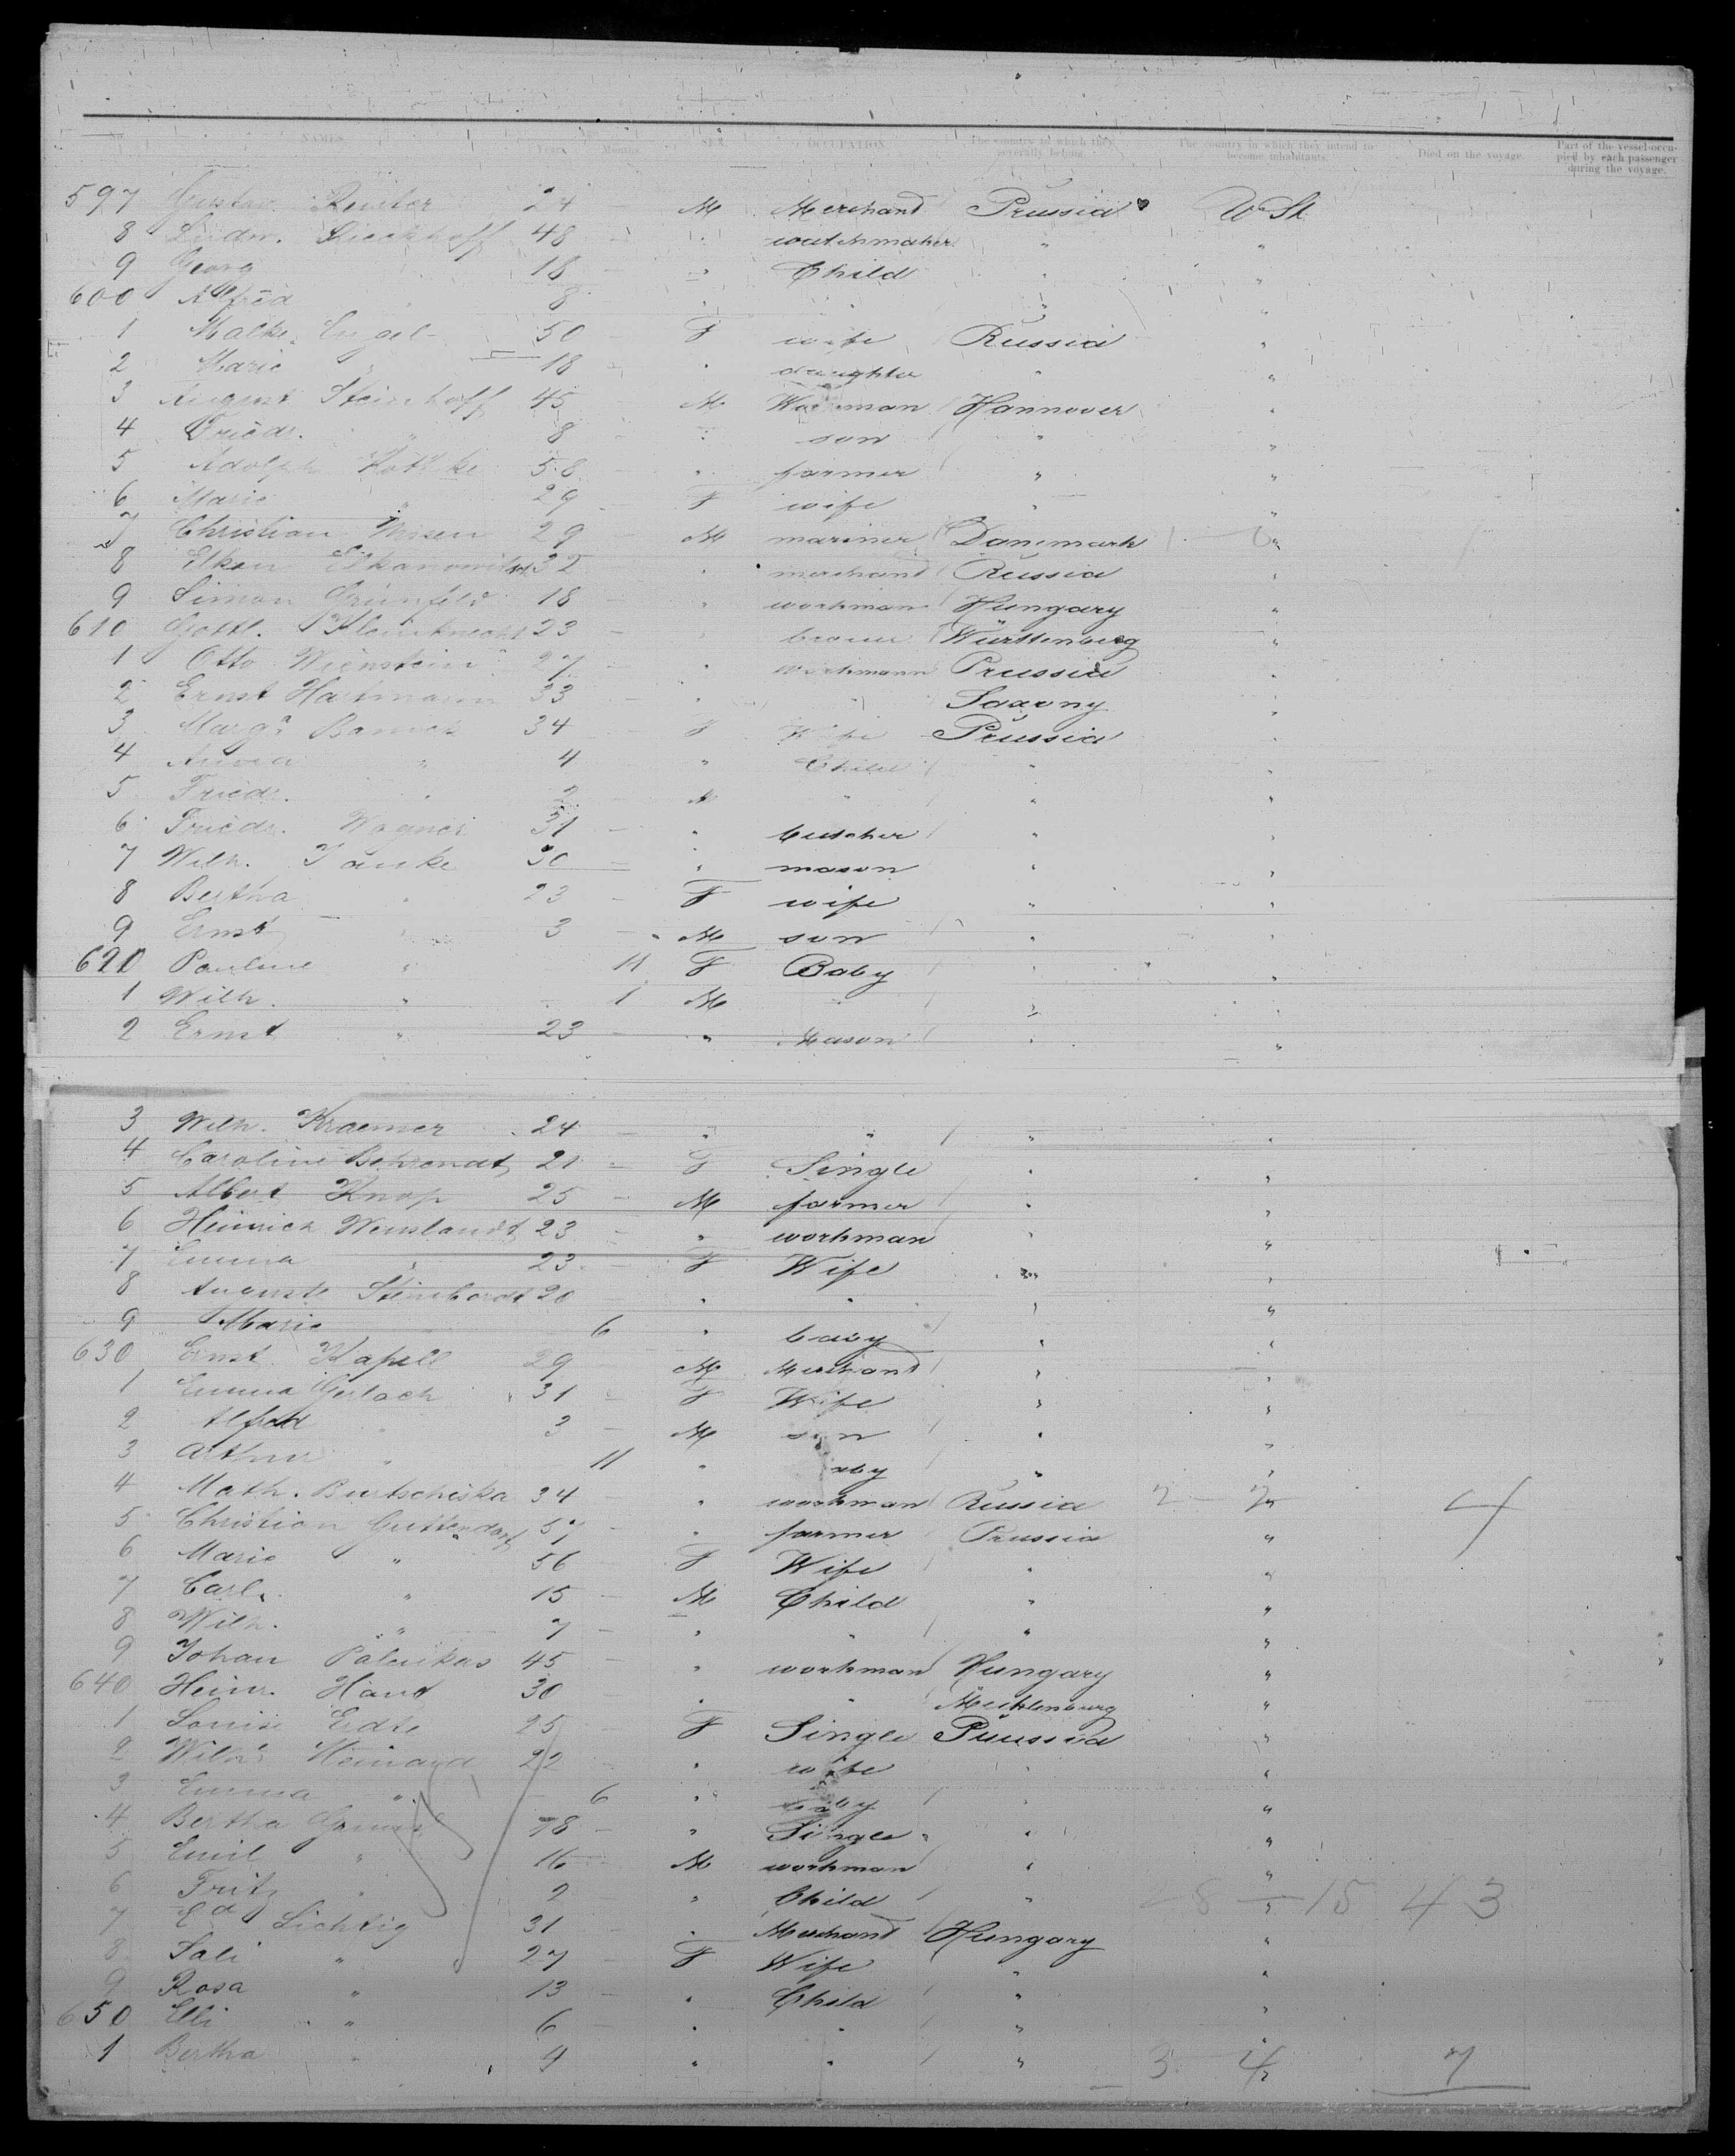 No. NAMES. Age Years. Months. SEX. OCCUPATION. The country to which they severally belong. The country in which they intend to become inhabitants. Died on the voyage. Part of the vessel occupied by each passenger during the voyage.
597 Gustav Reuter 24 M Merchant Prussia U. St.
8 Ludw. 48 " watchmaker " "
9 Georg " 18 " Child " "
600 Alfred " 8 " " " "
1 Malke Engel 50 F wife Russia "
2 Marie " 18 " daughter " "
3 August Steinhoff 45 M Workman Hannover "
4 Friedr. " 8 " son " "
5 Adolph 58 " farmer " "
6 Marie " 29 F wife " "
7 Christian 29 M mariner Danemark "
8 Elkan Elkanowitsch 32 " merchant Russia "
9 Simon Grünfeld 18 " workman Hungary "
610 Gottl. Kleinknecht 23 " Württenberg "
1 Otto Wienstein 27 " workmann Prussia "
2 Ernst Hartmann 33 " " Saxony "
3 Marga 34 F Wife Prussia "
4 Anna " 4 " Child " "
5 Friedr. " 2 M " " "
6 Friedr. Wagner 31 " butcher " "
7 Wilh. Janke 30 " mason " "
8 Bertha " 23 F wife " "
9 Ernst " 3 M son " "
620 Pauline " 11 F Baby " "
1 Wilh. " 1 M " " "
2 Ernst " 23 " Mason " "
3 Wilh. Kraemer 24 " " " "
4 Caroline Behrendt 21 F Single " "
5 Albert Knop 25 M farmer " "
6 Heinrich Wenslandt 23 " workman " "
7 Emma " 23 F Wife " "
8 Auguste Steinhardt 20 " " " "
9 Marie " 6 " baby " "
630 Ernst Kapell 29 M Merchant " "
1 Emma Gerlach 31 F Wife " "
2 Alfred " 3 M son " "
3 Arthur " 11 " baby " "
4 Math. Burtschiska 34 " workman Russia 2 "
5 Christian Guttendorf 57 " farmer Prussia "
6 Marie " 56 F Wife " "
7 Carl " 15 M Child " "
8 Wilh. " 7 " " " "
9 Johan Palenkas 45 " workman Hungary "
640 Heinr. Hand 30 " " Mecklenburg "
1 Louise Erdte 25 F Single Prussia "
2 Wilh. Weinand 22 " wife " "
3 Emma " 6 " baby " "
4 Bertha 18 " Single " "
5 Emil " 16 M workman " "
6 Fritz " 2 " Child " 28 " 15 43
7 Ed Lichtig 31 " Merchant Hungary "
8 Sali " 27 F Wife " "
9 Rosa " 13 " Child " "
650 Elli " 6 " " " "
1 Bertha " 4 " " " 3 4 7